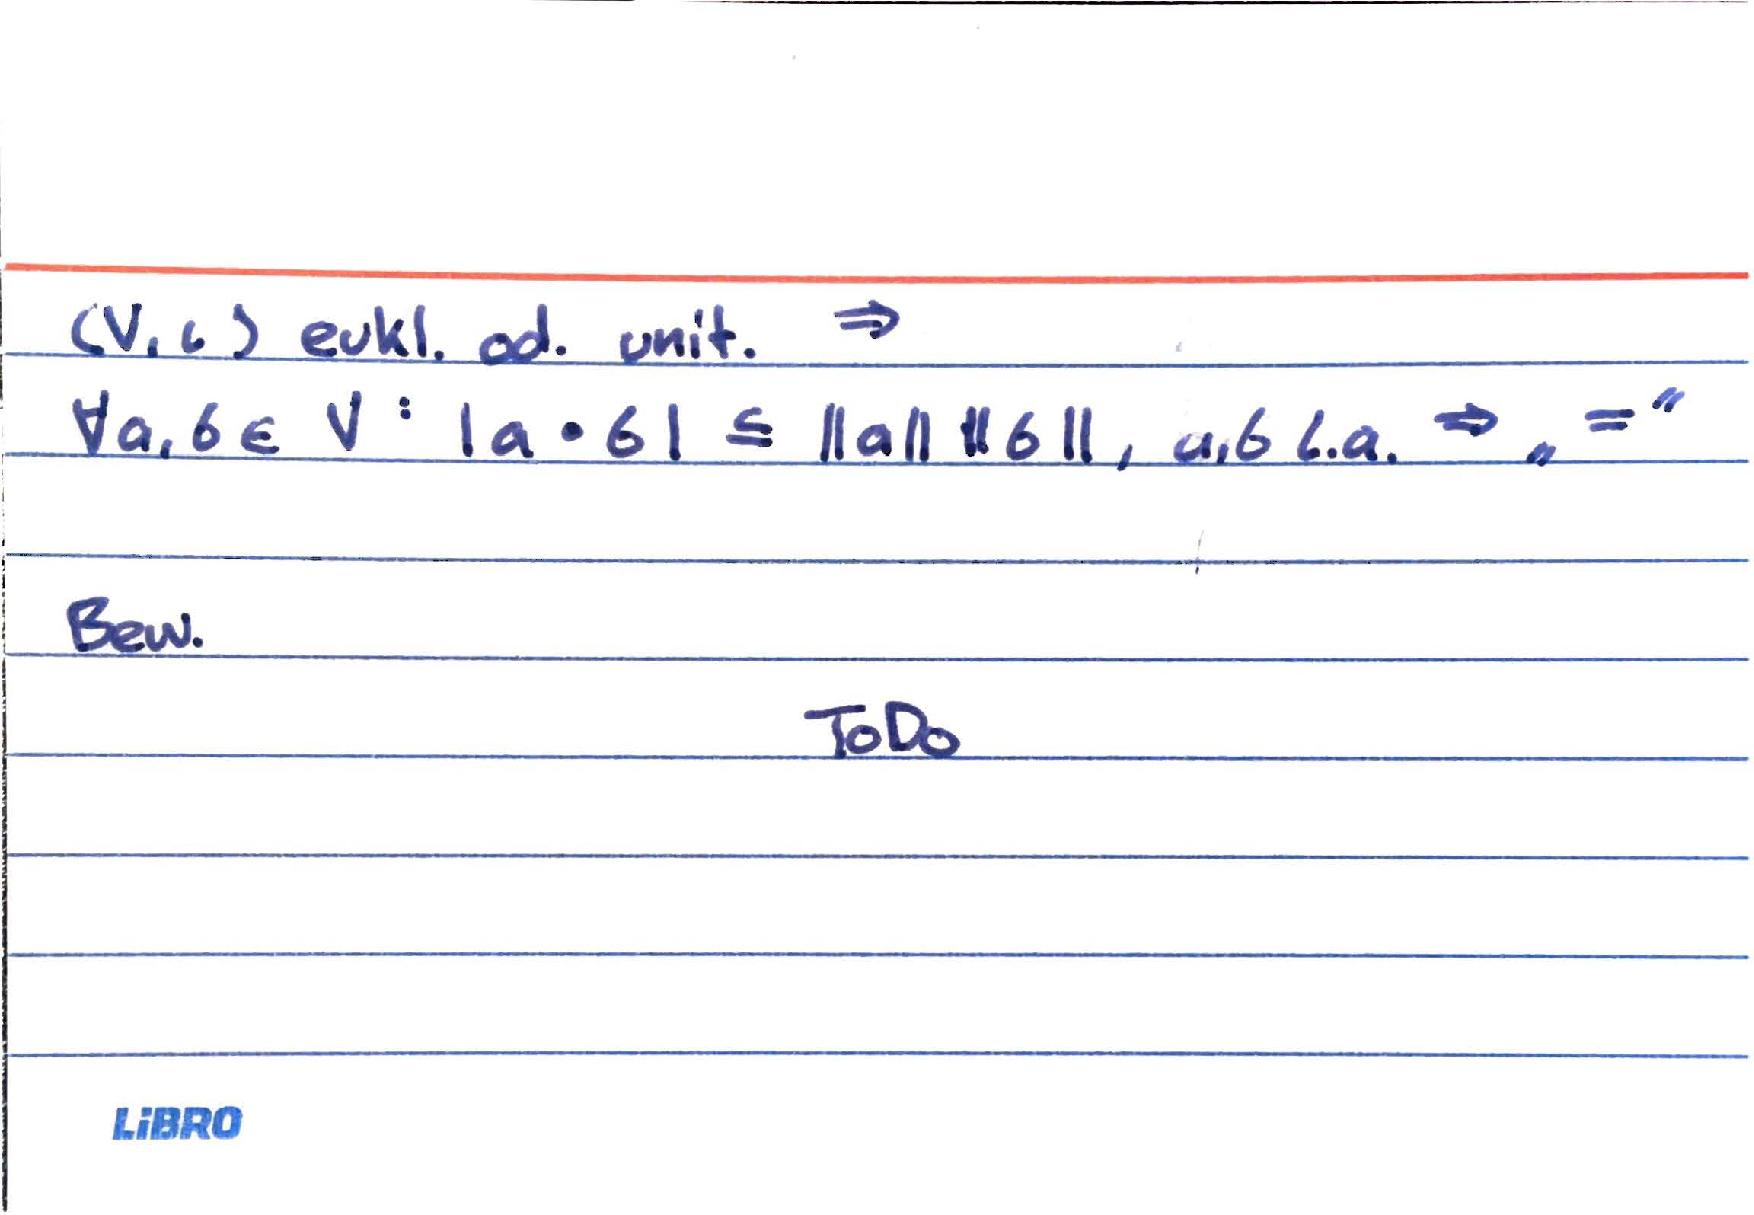 (V, ι) eukl. od. unit. ⇒
∀a, b ∈ V : |a • b| ≤ ||a|| ||b||, a, b l.a. ⇒ „="
Bew.
ToDo
LiBRO